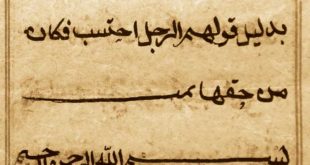 بدليل قولهم الرجل احتسب فكان
من حقها بمـــ
بســـم الله الرحمن الرحيم